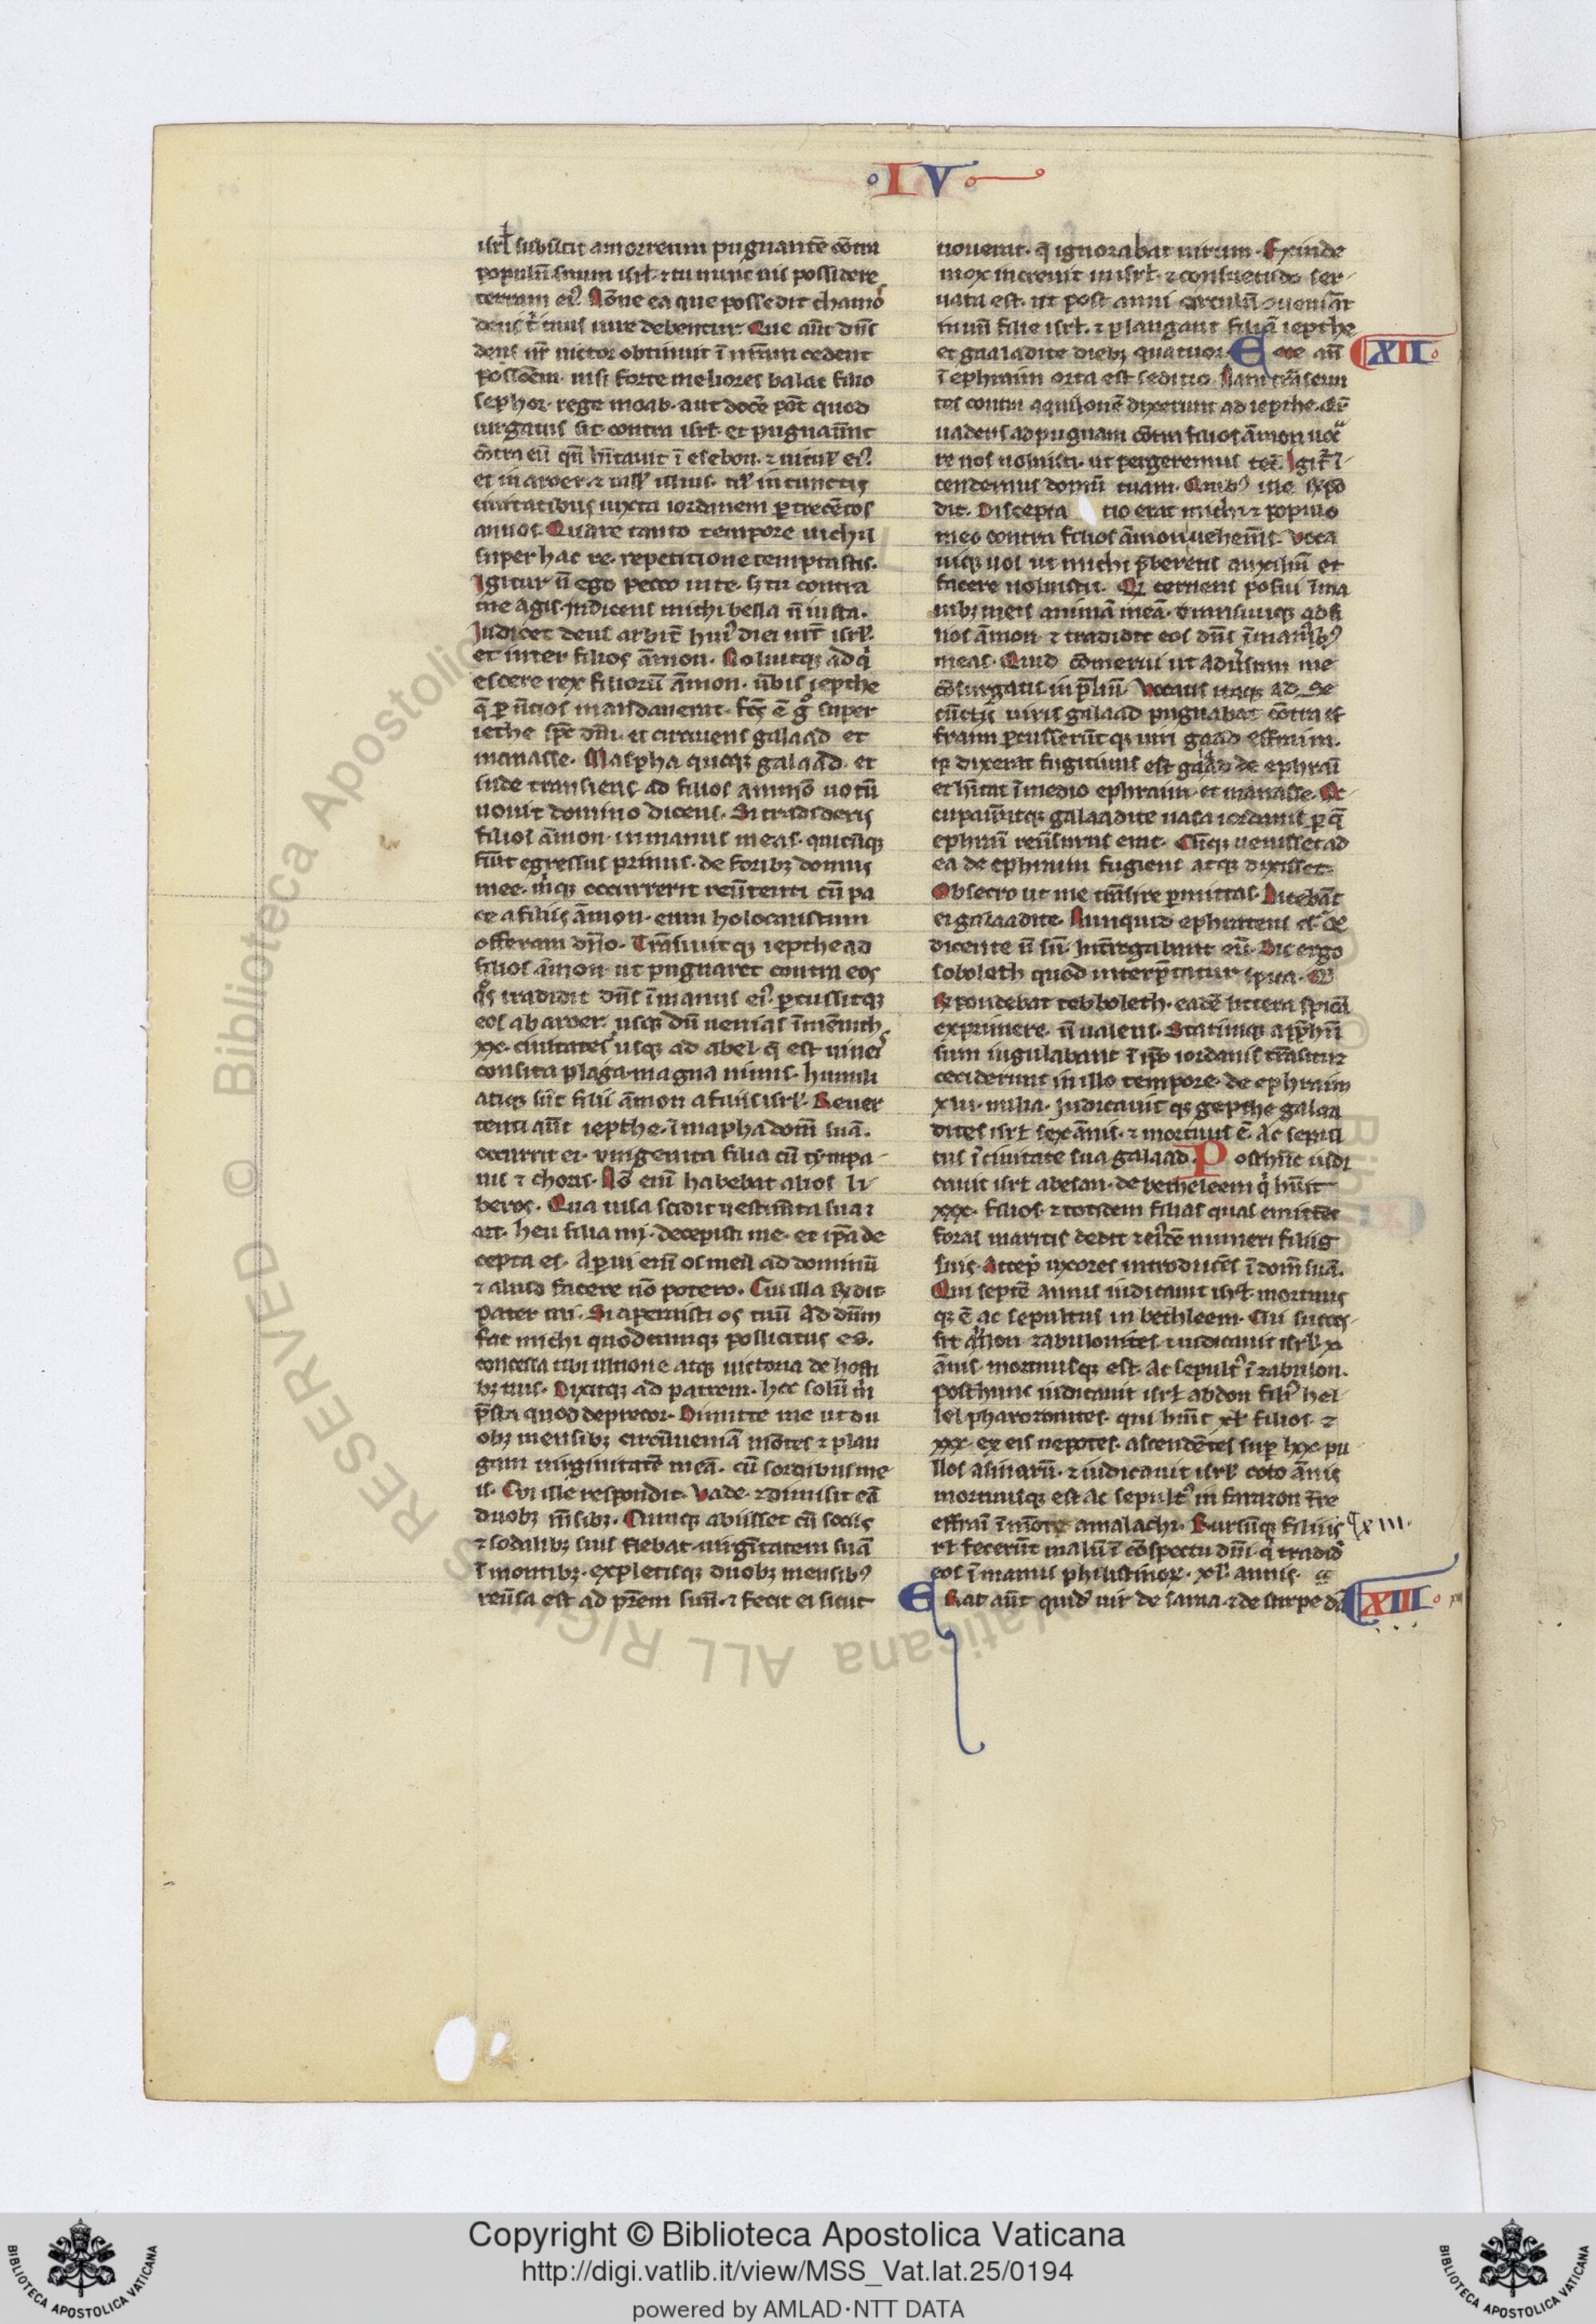 IV
isrł subuertit amorreum pugnantē cōtra
populū suum isrł· ⁊ tu nunc uis possidere
terram ei⁹· Nōne ea que possedit chamos
deus t̄ tuus iure debentur· Que aūt dn̄s
deus nr̄ uictor obtinuit ī nr̄am cedent
possōem· nisi forte melior es balac filio
sephor· rege moab· aut docē pōt quod
iurgatus sit contra isrł· et pugnauīt
cōtra eū qn̄ hītauit ī esebon· ⁊ uicul̄ ei⁹·
et in aroer ⁊ uill̄ illius· ul̄ in cunctis
ciuitatibus iuxta iordanem p trecētos
annos· Quare tanto tempore nichil
super hac re· repetitione temptastis·
Igitur ñ ego pecco in te· s tu contra
me agis· indicens michi bella ñ iusta·
Iudicet deus arbitr̄ hui⁹ diei int̄ isrł·
et inter filios āmon· Noluitqꝫ adq̇
escere rex filiorū āmon· ūbis iepthe
q̄ p n̄cios mandauerat· fc̄s ē g̊ super
iepthe sp̄c dn̄i· et circuiens galaad et
manasse· Maspha quoqꝫ galaad· et
inde transiens ad filios ammō uotū
uouit domino dicens· Si tradideris
filios āmon· in manus meas· quicūqꝫ
fūit egressus primus· de foribꝫ domus
mee· m̄iqꝫ occurrerit reūtenti cū pa
ce a filiis āmon· eum holocaustum
offeram dn̄o· Trāsiuitqꝫ iepthe ad
filios āmon· ut pugnaret contra eos
qͦs tradidit dn̄s ī manus ei⁹· pcussitqꝫ
eos ab aroer· usqꝫ dū uenias ī mēnith
xx· ciuitates usqꝫ ad abel· q̄ est uineis
consita plaga magna nimis· humili
atiqꝫ sūt filii āmon a filiis isrł· Reuer
tenti aūt iepthe· ī mapha domū suā·
occurrit ei· unigenita filia cū tȳmpa-
nis ⁊ choris· Nō enī habebat alios li-
beros· Qua uisa scidit uestim̄ta sua ⁊
ait· heu filia mi· decepisti me· et ip̄a de
cepta es· Aperui enī os meū ad dominū
⁊ aliud facere nō potero· Cui illa rn̄dit
pater mi· Si aperuisti os tuū ad dn̄m
fac michi quodcumqꝫ pollicitus es·
concessa tibi ultione atqꝫ uictoria de hosti
bꝫ tuis· Dixitqꝫ ad patrem· hoc solū m̄
p̄sta quod deprecor· Dimitte me ut du
obꝫ mensibꝫ circūueniā mōtes ⁊ plan
gam uirginitatē meā· cū sodalibus me
is· Cui ille respondit· Vade· ⁊ dimisit eā
duobꝫ m̄sibꝫ· Cumqꝫ abiisset cū sociis
⁊ sodalibꝫ suis flebat uirgītatem suā
ī montibꝫ· expletisqꝫ duobꝫ mensib⁹
reūsa est ad pr̄em suū· ⁊ fecit ei sicut
uouerat· q̄ ignorabat uirum· Exinde
mox increuit in isrł· ⁊ consuetudo ser-
uata est· ut post anni circulū ꝯueniāt
in unū filie isrł· ⁊ plangant filiā iepthe
et galaadite diebꝫ quatuor· Ecce aūt
XII
ī ephraim orta est seditio· Nam trāseun
tes contra aquilonē dixerunt ad iepthe· Qr̄
uadens ad pugnam cōtra filios āmon uoca
re nos noluisti· ut pergeremus tec̄· Igit̄ ī
cendemus domū tuam· Quib⁹ ille rn̄d
dit· Discepta tio erat michi ⁊ populo
meo contra filios āmon uehem̄s· Voca
uiqꝫ uos ut michi p̄beretis auxiliū et
facere noluistis· Qd cernens posui ī ma
nibꝫ meis animā meā· transiuiqꝫ ad fi
lios āmon· ⁊ tradidit eos dn̄s ī manib⁹
meas· Quid cōmerui ut aduīsum me
cōsurgatis in p̄liū· Vocatis itaqꝫ ad se
cūctis uiris galaad pugnabat cōtra ef
fraim pcusserūtqꝫ uiri galaad effraim·
qꝫ dixerat fugitiuus est galaad de ephraī
et hītat ī medio ephraim· et manasse· Oc-
cupauūtqꝫ galaadite uada iordanis p q̄
ephraī reūsurus erat· Cūqꝫ uenisset ad
ea de ephraim fugiens atqꝫ dixisset·
Obsecro ut me trāsire pmittas· Dicebāt
ei galaadite· Nunquid ephrateus es· Qo
dicente ñ sū· Int̄rogabant eū· Dic ergo
soboleth quod interp̄tatur spica· Qi
rn̄pondebat tebboleth· eadē littera spicā
exprimere· ñ ualens· Statimqꝫ app̄hn̄
sum iugulabant ī ip̄o iordanis trāsitu ⁊
ceciderunt in illo tempore· de ephraim
xlii· milia· Iudicauit qꝫ iepthe galaa
dites isrł sex ānis· ⁊ mortuus ē· Ac sepul
tus ī ciuitate sua galaad· Post hūc iudi
cauit isrł abesan· de bethleem q̇ hūit
xxx· filios· ⁊ totidem filias quas emittēs
foras maritis dedit ⁊ ei⁹dē numeri filiis
suis· accep̄ uxores introducēs ī domū suā·
Qui septē annis iudicauit isrł· mortuus
qꝫ ē ac sepultus in bethleem· Cui succes-
sit ahilon zabulonites· ⁊ iudicauit isrł x
ānis· mortuusqꝫ est· Ac sepult⁹ ī zabulon·
post hunc iudicauit isrł abdon fili⁹ hel-
lel pharatonites· qui hūit xl filios· ⁊
xxx· ex eis nepotes· ascendētes sup lxx· pu
llos asinarū· ⁊ iudicauit isrł octo ānis
mortuusqꝫ est ac sepult⁹ in faraton tr̄re
effraī ī mōte amalachi· Rursūqꝫ filii is
xiii·
rł fecerūt malū ī cōspectu dn̄i· q̇ tradid̄
eos ī manus philistinoꝝ· xl· annis·
Erat aūt quidā uir de saraa ⁊ de stirpe dā
XIII
Copyright © Biblioteca Apostolica Vaticana
http://digi.vatlib.it/view/MSS_Vat.lat.25/0194
powered by AMLAD·NTT DATA
BIBLIOTECA APOSTOLICA VATICANA
BIBLIOTECA APOSTOLICA VATICANA